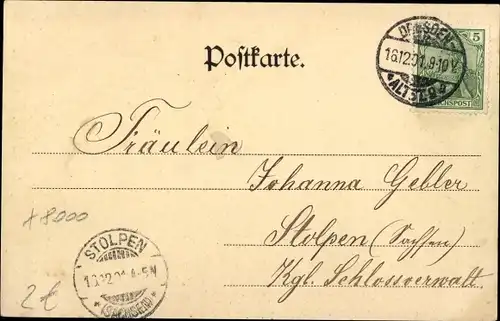 DRESDEN-
16.12.01. 9-10 V.
*ALTST. 9 d
5
REICHSPOST
Postkarte.
Fräulein
Johanna Gebler
Stolpen (Sachsen)
Kgl. Schlossverwalt.
+8000
STOLPEN
16.12.01. 4-5 N
*(SACHSEN)*
2€